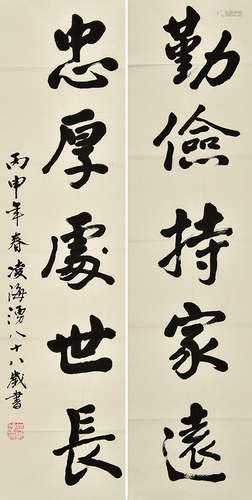 勤儉持家遠
忠厚處世長
丙申年春凌海湧八十八歲書